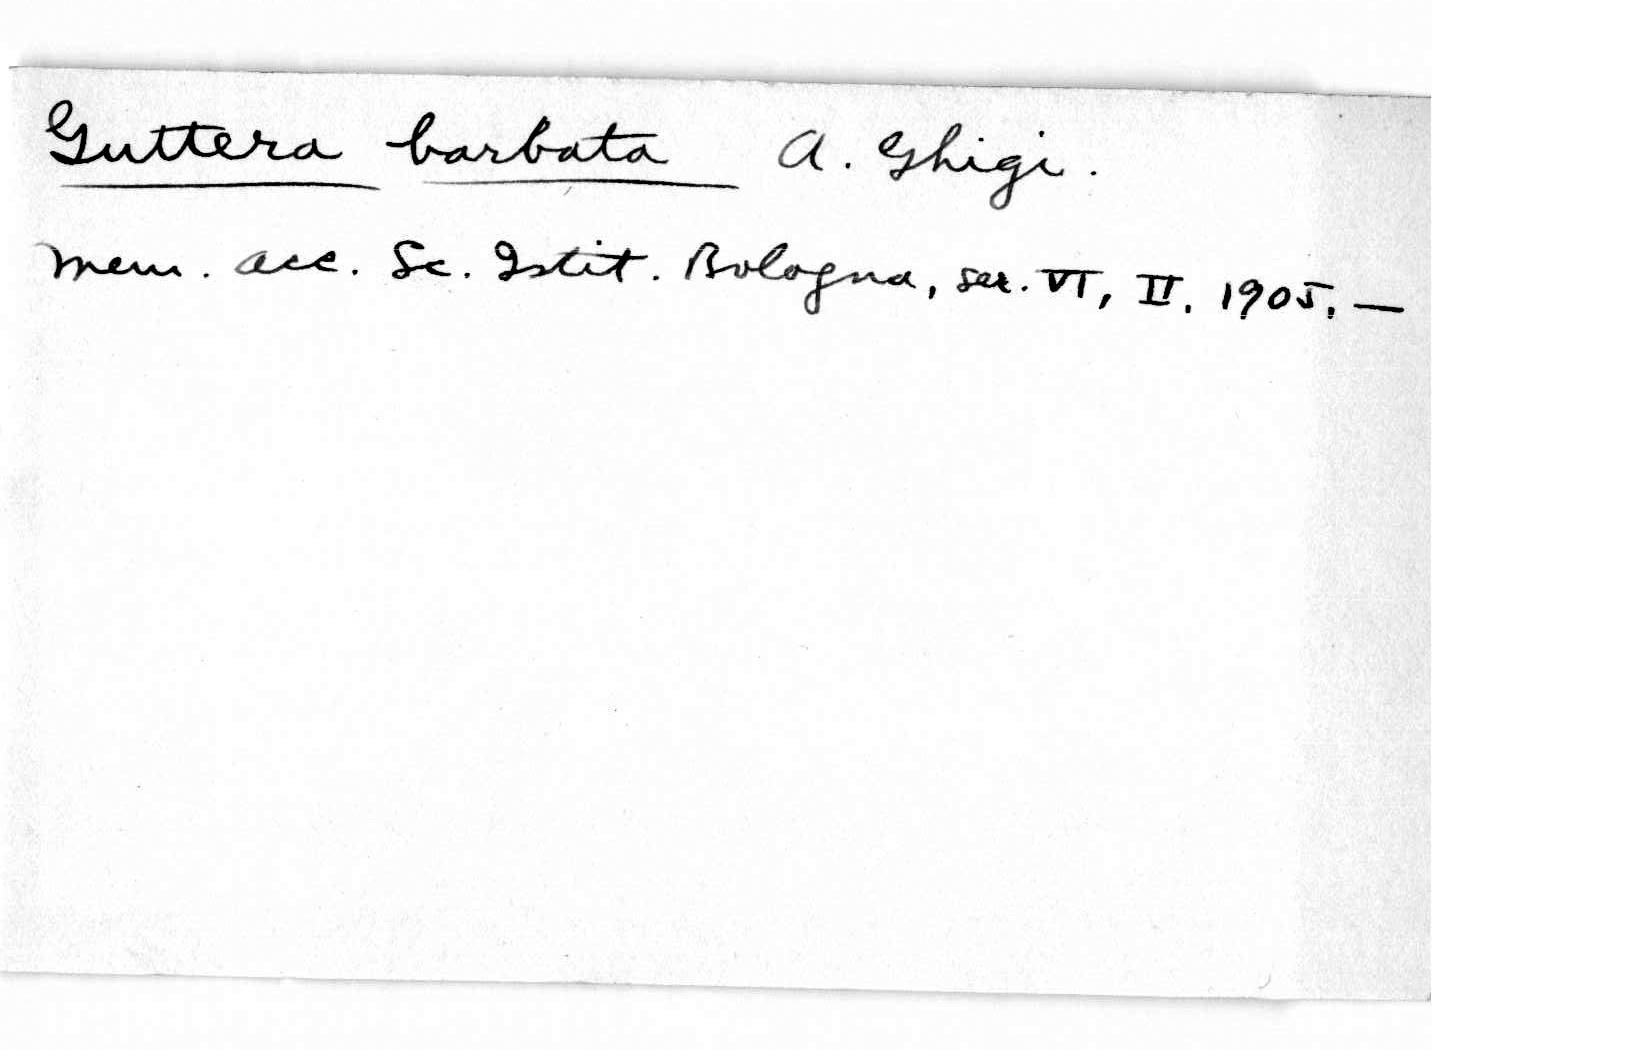 Guttera barbata A. Ghigi.
Mem. Acc. Sc. Istit. Bologna, ser. VI, II. 1905. —